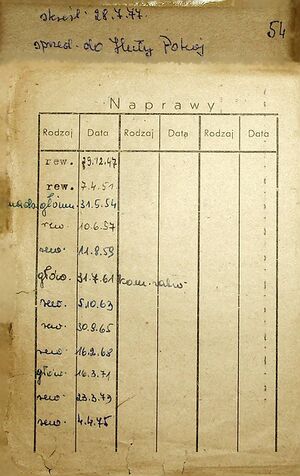 skreśl. 28.7.77.
54
sprzed. do Huty Pokój
Naprawy
Rodzaj Data Rodzaj Data Rodzaj Data
rew. 29.12.47
rew. 7.4.51
główn. 31.5.54
rew. 10.6.57
rew. 11.8.59
główn. 31.7.61
rew. 5.10.63
rew. 30.9.65
rew. 16.2.68
główn. 16.3.71
rew. 23.3.73
rew. 4.4.75